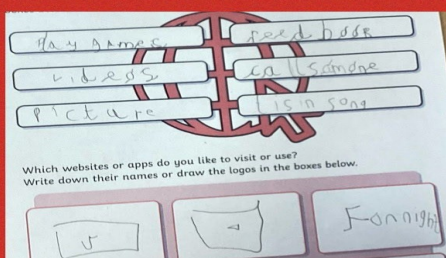 play games
reed book
videos
call somone
picture
lisin song
Which websites or apps do you like to visit or use?
Write down their names or draw the logos in the boxes below.
Fonnight